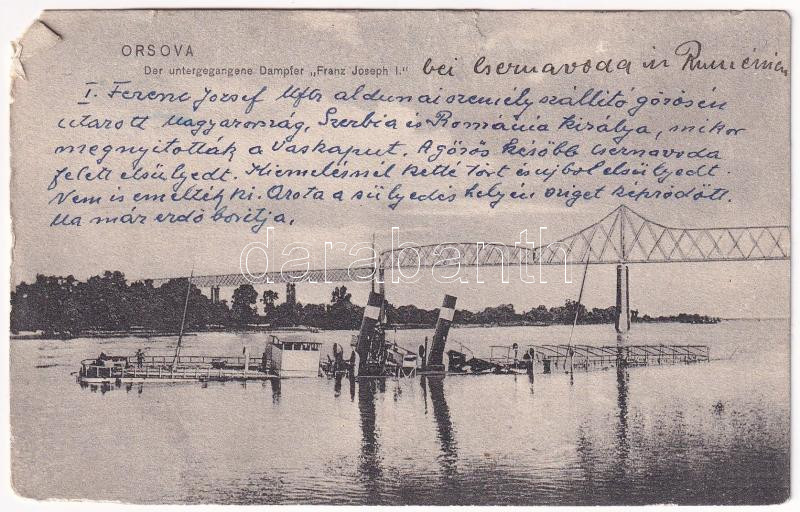 ORSOVA
Der untergegangene Dampfer „Franz Joseph I." bei Csernavoda in Rumänien
I. Ferenc József Mftr aldunai személyszállító gőrösén
utazott Magyarország, Szerbia és Románia királya, mikor
megnyitották a Vaskaput. A gőrös később Csernavoda
felett elsülyedt. Kiemelésnél ketté tört és ujbol elsülyedt.
Nem is emelték ki. Azota a sülyedés helyén sziget képződött.
Ma már erdő boritja.
darabanth